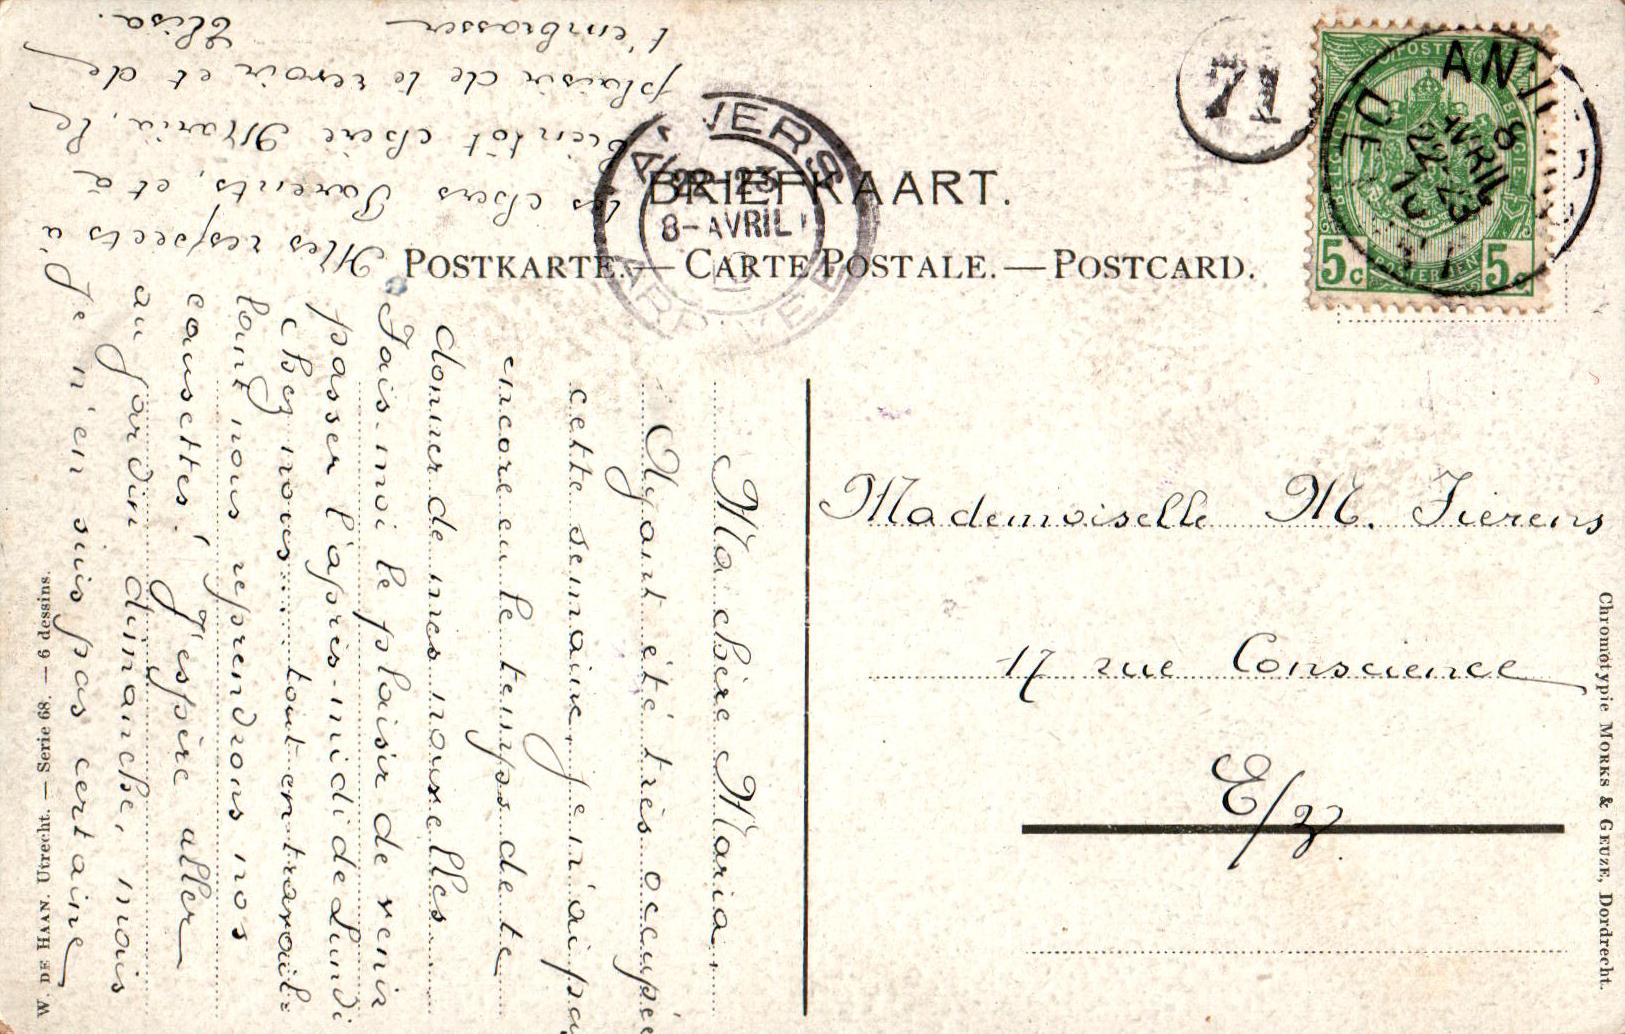 BRIEFKAART.
POSTKARTE. — CARTE POSTALE. — POSTCARD.
71
ANVERS
22-23
8-AVRIL
8
AVRIL
22-23
BELGIQUE
POSTERIJEN
5c 5c
Mademoiselle M. Fierens
17 rue Conscience
E/v
Ma chère Maria,
Ayant été très occupée
cette semaine, je n'ai pas
encore eu le temps de te
donner de mes nouvelles.
Fais-moi le plaisir de venir
passer l'après-midi de Lundi
chez nous.... tout en travail-
lant nous reprendrons nos
causettes! J'espère aller
au jardin dimanche, mais
je n'en suis pas certaine
Mes respects à
tes chers Parents, et à
bientôt chère Maria, le
plaisir de te revoir et de
t'embrasser
Elisa.
W. DE HAAN. Utrecht. — Serie 68. — 6 dessins.
Chromotypie MORKS & GEUZE, Dordrecht.